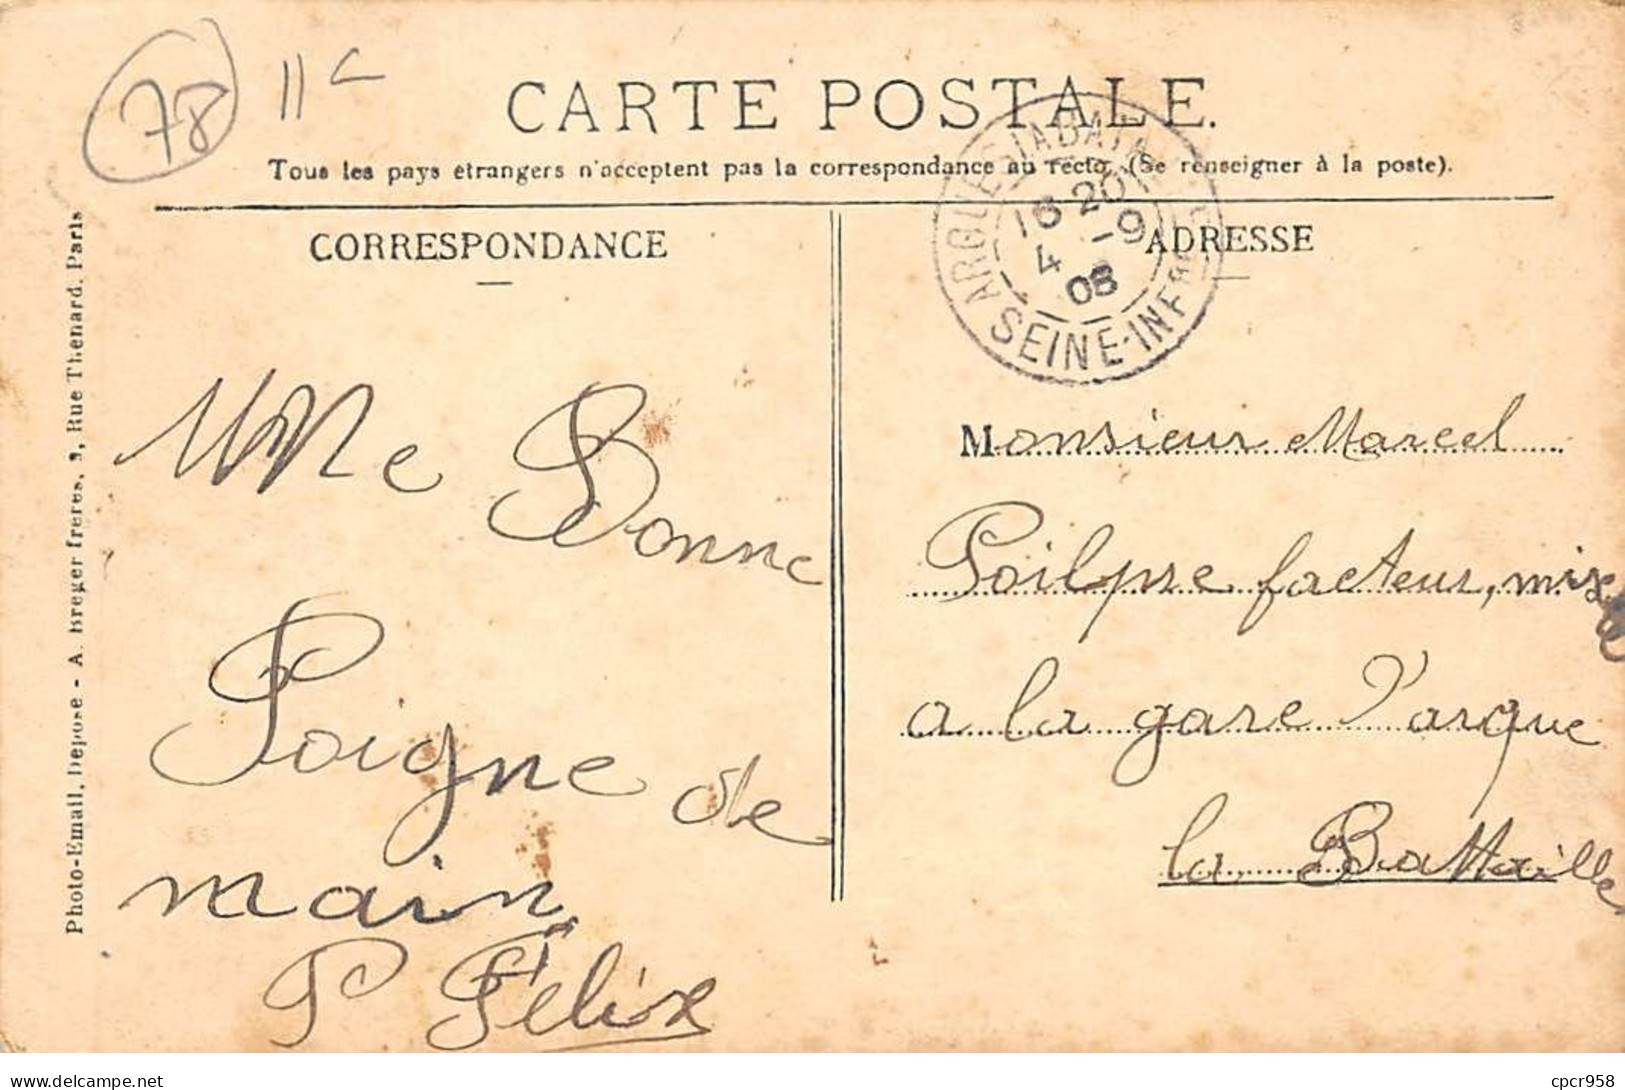 78
CARTE POSTALE.
Tous les pays étrangers n'acceptent pas la correspondance au recto. (Se renseigner à la poste).
CORRESPONDANCE
ADRESSE
16 20
4 -9
08
SEINE-INFRE
Photo-Email. Déposé - A. Breger frères, 9, Rue Thénard. Paris
Une Bonne
Poigne de
main
P Félix
Monsieur Marcel
Poilpre facteur, mixte
a la gare d'arque
la Battaille
delcampe.net
cpcr958